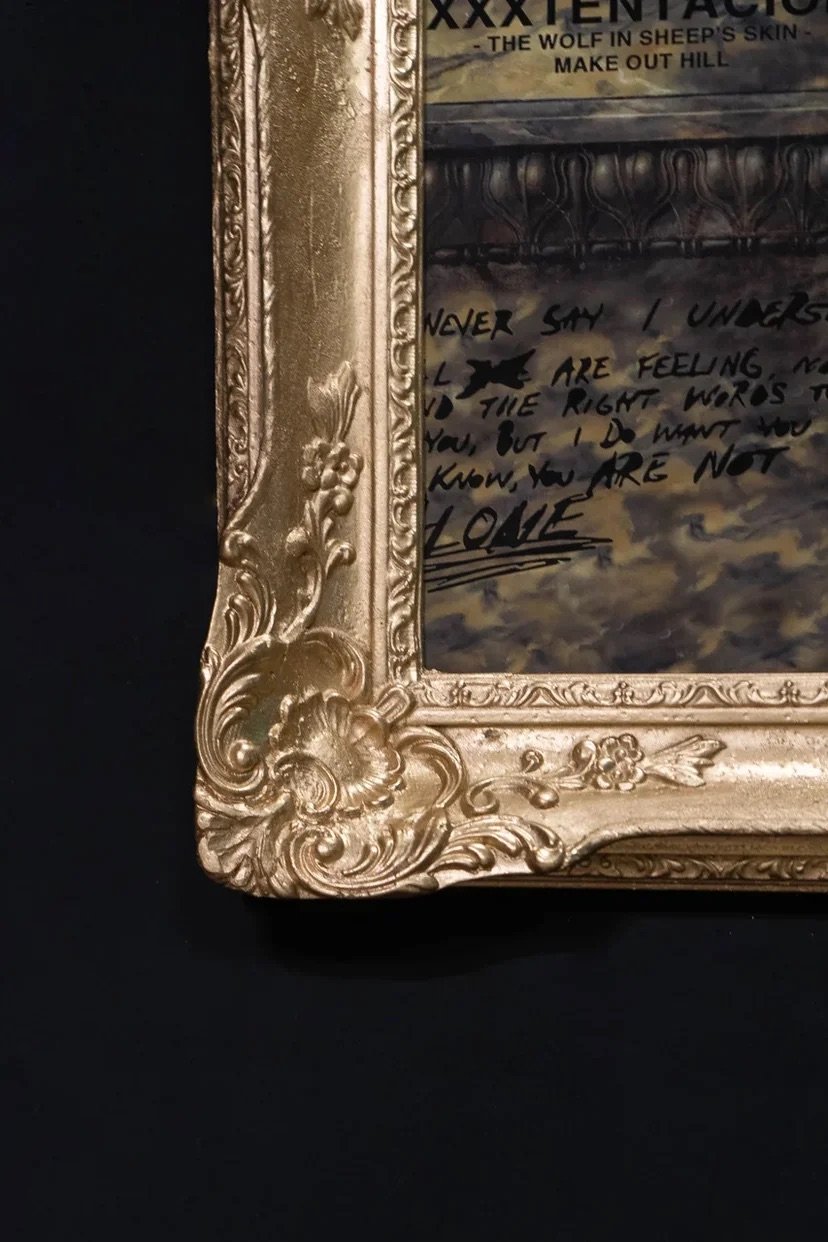 XXXTENTACIO
- THE WOLF IN SHEEP'S SKIN -
MAKE OUT HILL
NEVER SAY I UNDERS
L ARE FEELING, NO
ND THE RIGHT WORDS T
YOU, BUT I DO WANT YOU
KNOW, YOU ARE NOT
LONE